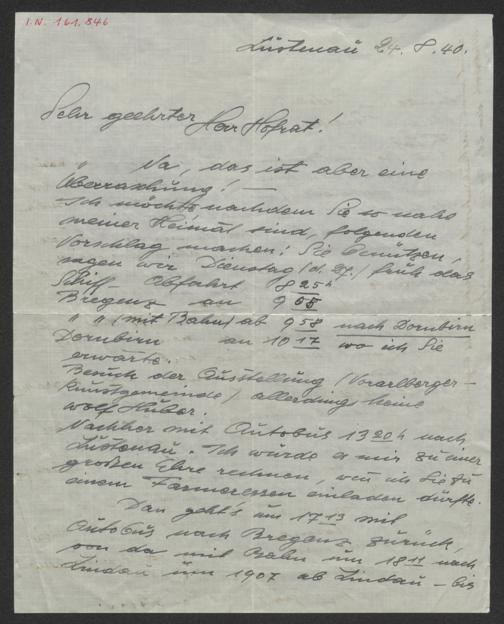 I.N. 161.846
Lustenau 24. 8. 40.
Sehr geehrter Herr Hofrat!
Na, das ist aber eine
Überraschung! —
Ich möchte nachdem Sie so nahe
meiner Heimat sind, folgenden
Vorschlag machen: Sie benützen,
sagen wir Dienstag (d. 27.) früh das
Schiff Abfahrt 8 25h
Bregenz an 9 05
" " (mit Bahn) ab 9 58 nach Dornbirn
Dornbirn an 10 17 wo ich Sie
erwarte.
Besuch der Ausstellung (Vorarlberger-
kunstgemeinde) allerdings keine
Wolf Huber.
Nachher mit Autobus 13 20 h nach
Lustenau. Ich würde es mir zu einer
großen Ehre rechnen, wenn ich Sie zu
einem Farmeressen einladen dürfte.
Dan geht's um 17 13 mit
Autobus nach Bregenz zurück,
von da mit Bahn um 18 11 nach
Lindau um 1907 ab Lindau – bis